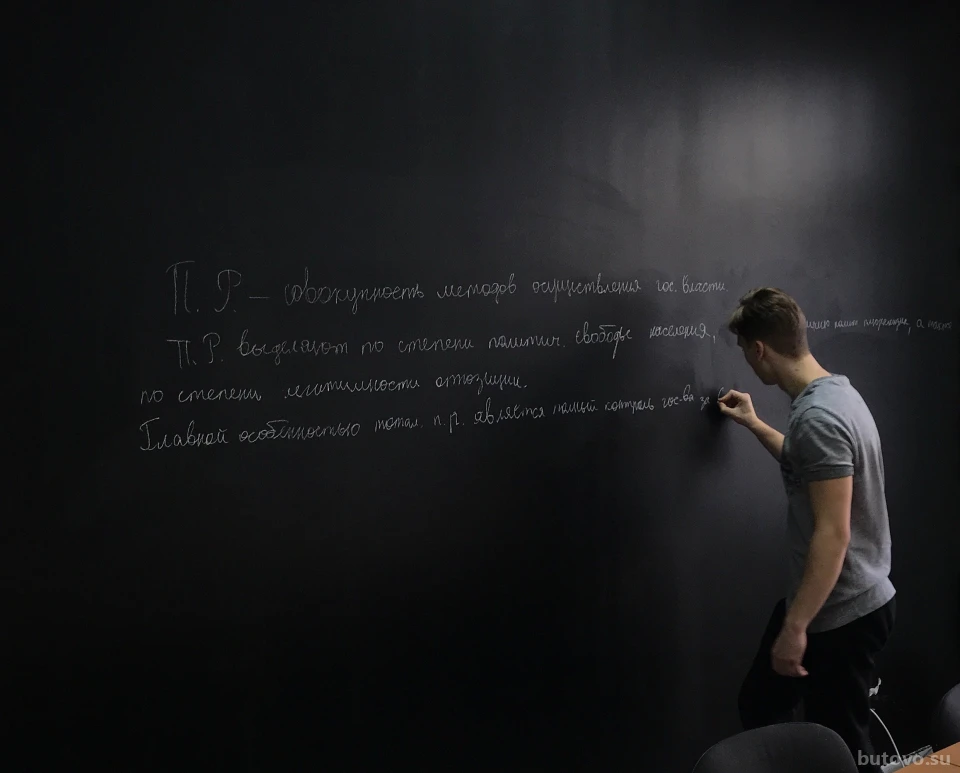 П. Р. – совокупность методов осуществления гос. власти
П. Р. выделяют по степени политич. свободы населения, а также
по степени легитимности оппозиции.
Главной особенностью тотал. п.р. является полный контроль гос-ва за
butovo.su